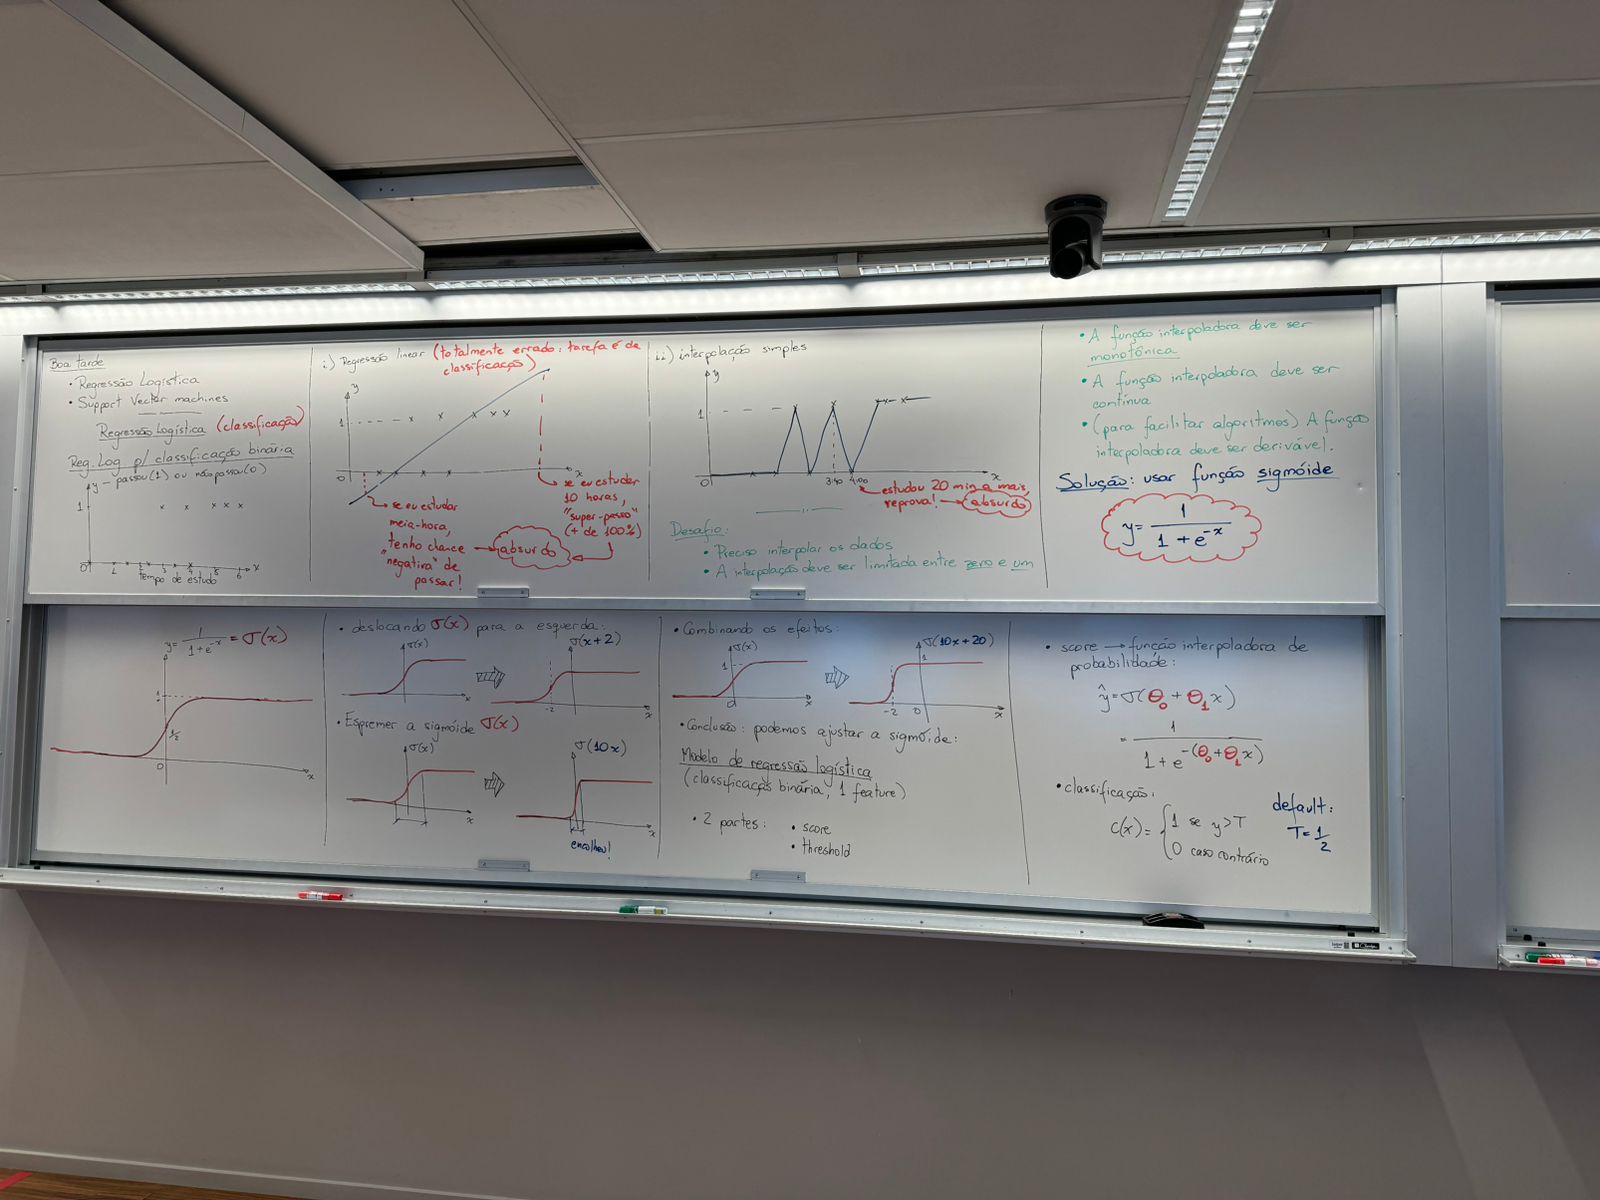 Boa tarde
• Regressão Logística
• Support Vector machines
Regressão Logística (classificação)
Reg. Log p/ classificação binária
y - passou(1) ou não passou(0)
1
0 1 2 3 4 5 6 x
tempo de estudo
i) Regressão linear (totalmente errado: tarefa é de
classificação)
y
1
0
x
se eu estudar
meia-hora,
tenho chance
"negativa" de
passar!
absurdo
se eu estudar
10 horas,
"super-passo"
(+ de 100%)
ii) interpolação simples
y
1
0 3:40 4:00 x
estudou 20 min a mais,
reprova! → absurdo
Desafio:
• Preciso interpolar os dados
• A interpolação deve ser limitada entre zero e um
• A função interpoladora deve ser
monotônica
• A função interpoladora deve ser
contínua
• (para facilitar algoritmos) A função
interpoladora deve ser derivável.
Solução: usar função sigmóide
y = 1 / (1 + e^-x)
y = 1 / (1 + e^-x) = σ(x)
1
1/2
0
x
• deslocando σ(x) para a esquerda:
σ(x) σ(x+2)
x -2 x
• Espremer a sigmóide σ(x)
σ(x) σ(10x)
x x
encolheu!
• Combinando os efeitos:
σ(x) σ(10x+20)
1 1
0 x -2 0 x
• Conclusão: podemos ajustar a sigmóide:
Modelo de regressão logística
(classificação binária, 1 feature)
• 2 partes: • score
• threshold
• score → função interpoladora de
probabilidade:
ŷ = σ(θ₀ + θ₁x)
= 1 / (1 + e^-(θ₀+θ₁x))
• classificação:
c(x) = { 1 se y > T
0 caso contrário
default:
T = 1/2